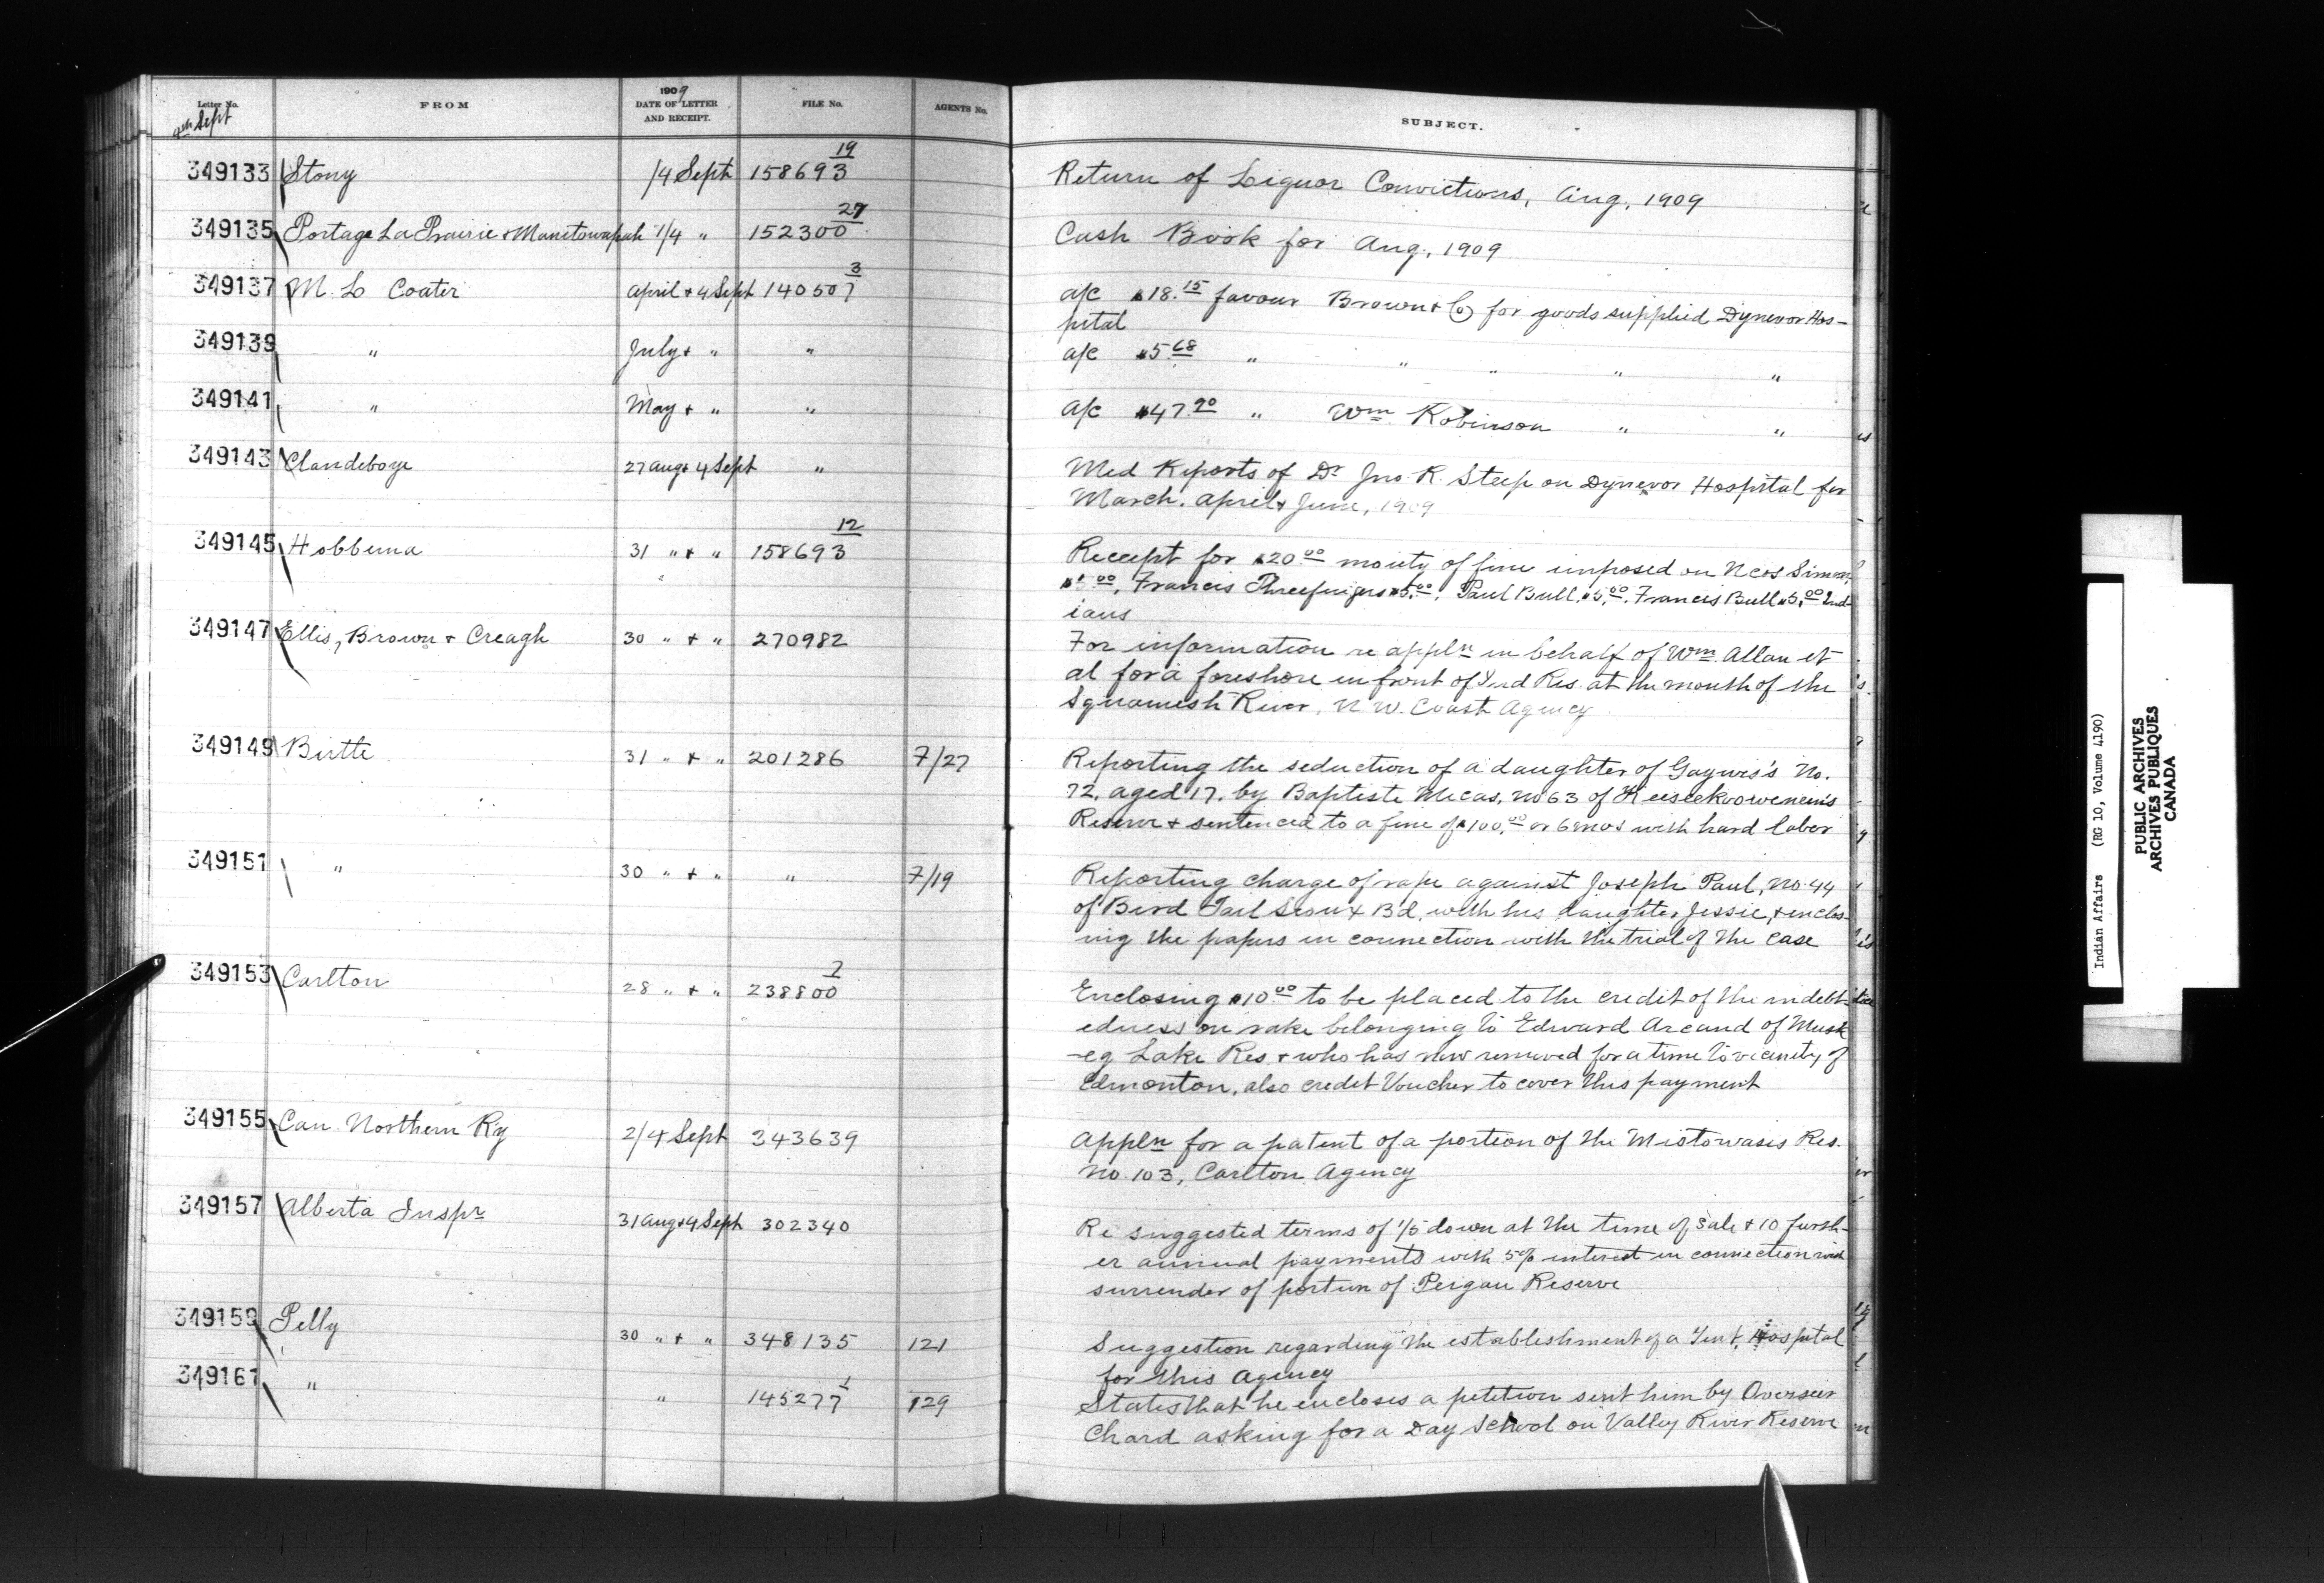 Letter No. FROM 1909 DATE OF LETTER AND RECEIPT. FILE No. AGENTS No. SUBJECT.
4th Sept
349133 Stony 1/4 Sept 158693 19 Return of Liquor Convictions, Aug, 1909
349135 Portage La Prairie & Manitowapah 1/4 " 152300 27 Cash Book for Aug, 1909
349137 M. L Coater April & 4 Sept 140507 3 a/c $18.15 favour Brown & Co for goods supplied Dynevor Hos-
pital
349139 " July & " " a/c $5.68 " " " " "
349141 " May & " " a/c $47.90 " Wm Robinson " "
349143 Clandeboye 27 Aug & 4 Sept " Med Reports of Dr Jno. R. Steep on Dynevor Hospital for
March, April & June, 1909
349145 Hobbema 31 " & " 158693 12 Receipt for $20.00 moiety of fine imposed on
Francis Threefingers $5.00, Paul Bull, $5.00, Francis Bull $5.00 Ind-
ians
349147 Ellis, Brown & Creagh 30 " & " 270982 For information re appln in behalf of Wm Allan et
al for a foreshore in front of Ind Res. at the mouth of the
Squamish River, N W. Coast Agency
349149 Birtle 31 " & " 201286 7/27 Reporting the seduction of a daughter of Gaywis's No.
72, aged 17, by Baptiste Mecas, No 63 of Keeseekoowenin's
Reserve & sentenced to a fine of $100.00 or 6 mos with hard labor
349151 " 30 " & " " 7/19 Reporting charge of rape against Joseph Paul, No. 44
of Bird Tail Sioux Bd, with his daughter Jessie, & enclos-
ing the papers in connection with the trial of the case
349153 Carlton 28 " & " 238800 2 Enclosing $10.00 to be placed to the credit of the indebt-
edness on rake belonging to Edward Arcand of Musk
-eg Lake Res & who has now removed for a time to vicinity of
Edmonton, also credit Voucher to cover this payment
349155 Can. Northern Ry 2/4 Sept 343639 Appln for a patent of a portion of the Mistowasis Res.
No. 103, Carlton Agency
349157 Alberta Inspr 31 Aug & 4 Sept 302340 Re suggested terms of 1/5 down at the time of sale & 10 furth-
er annual payments with 5% interest in connection with
surrender of portion of Peigan Reserve
349159 Pelly 30 " & " 348135 121 Suggestion regarding the establishment of a Tent Hospital
for this Agency
349161 " " 145277 1 129 States that he encloses a petition sent him by Overseer
Chard asking for a Day School on Valley River Reserve
Indian Affairs (RG 10, Volume 4190)
PUBLIC ARCHIVES
ARCHIVES PUBLIQUES
CANADA